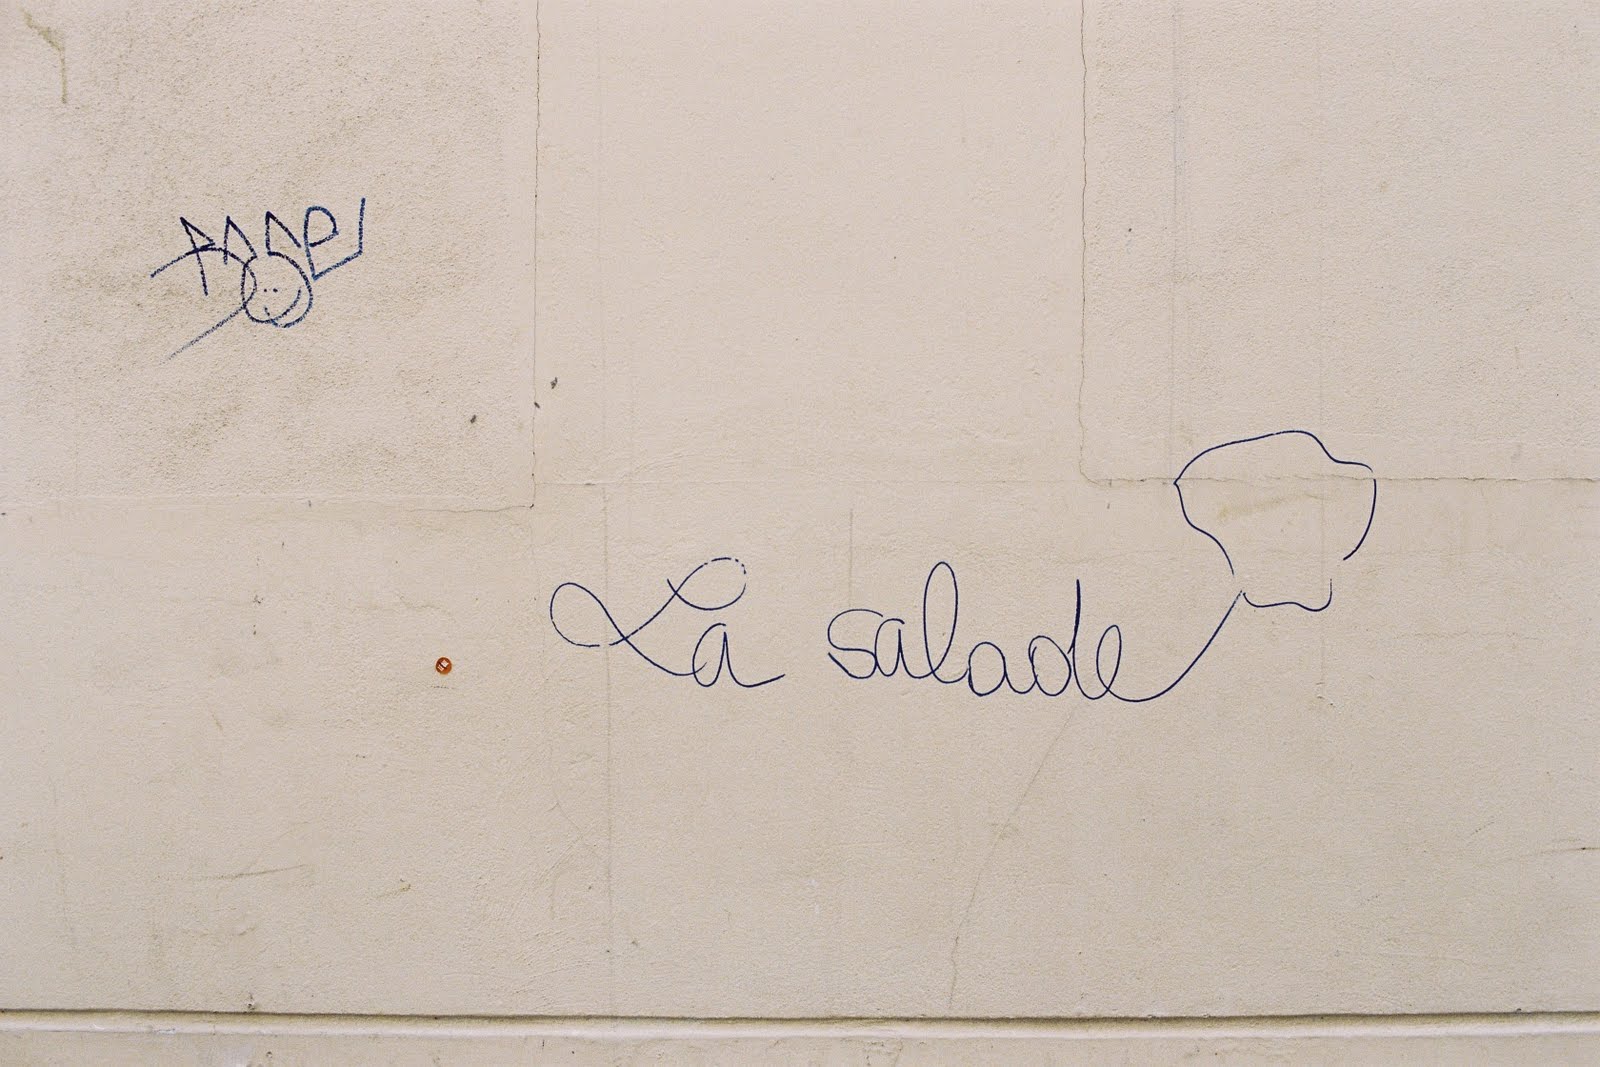 La salade